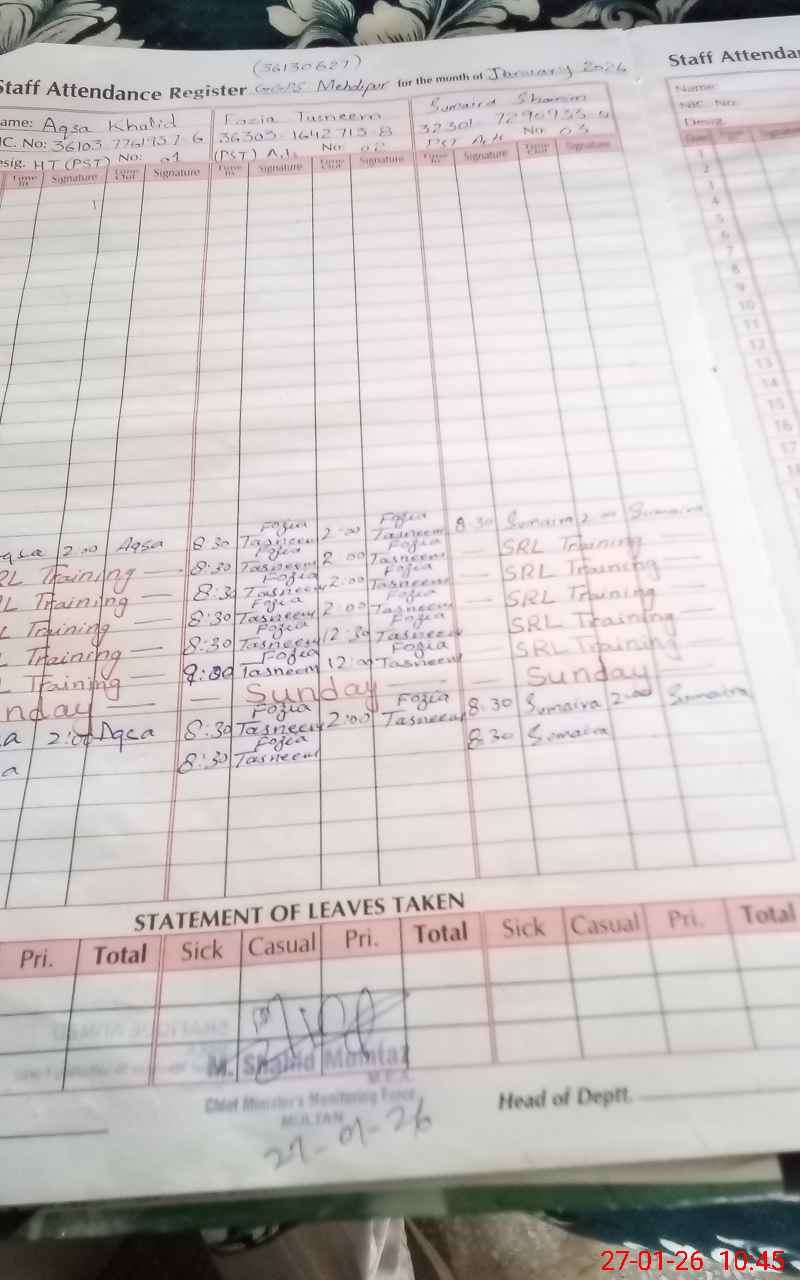 (36130627)
Staff Attendance Register GGPS Mehdipur for the month of January 2026
Staff Attendan
ame: Aqsa Khalid Fozia Tasneem Sumaira Shamim
IC. No: 36303-1642713-8
esig. HT (PST) No: 01 (PST) Arts No: 02 PST Arts No: 03
Name:
NIC. No:
Desig.
Time In Signature Time Out Signature Time In Signature Time Out Signature Time In Signature Time Out Signature
1
2
3
4
5
6
7
8
9
10
11
12
13
14
15
16
17
qsa 2:00 Aqsa 8:30 Fozia Tasneem 2:00 Fozia Tasneem 8:30 Sumaira 2:00 Sumaira
RL Training — 8:30 Fozia Tasneem 2:00 Fozia Tasneem — SRL Training —
L Training — 8:30 Fozia Tasneem 2:00 Fozia Tasneem — SRL Training —
L Training — 8:30 Fozia Tasneem 2:00 Fozia Tasneem — SRL Training —
L Training — 8:30 Fozia Tasneem 12:30 Fozia Tasneem — SRL Training —
L Training — Fozia Tasneem 12:00 Fozia Tasneem — SRL Training —
nday — — Sunday — — Sunday —
a 2:00 Aqsa 8:30 Fozia Tasneem 2:00 Fozia Tasneem 8:30 Sumaira 2:00 Sumaira
a 8:30 Fozia Tasneem 8:30 Sumaira
STATEMENT OF LEAVES TAKEN
Pri. Total Sick Casual Pri. Total Sick Casual Pri. Total
M. Shahid Momtaz
M.E.A.
Chief Minister's Monitoring Force
MULTAN
27-01-26
Head of Deptt.
27-01-26 10:45